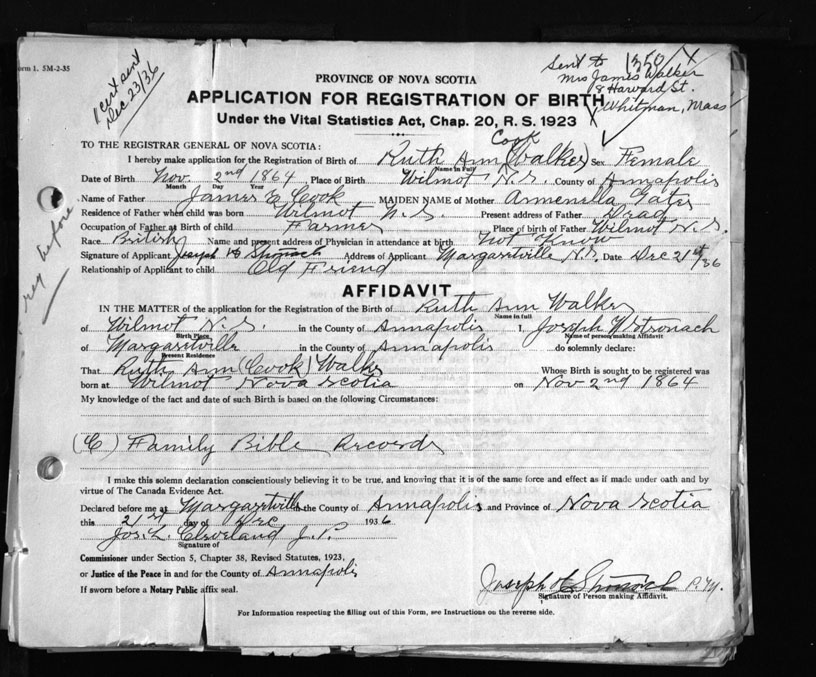 orm 1. 5M-2-35
1 cert sent
Dec 23/36
Sent to 1350/
Mrs James Walker
8 Harvard St.
Whitman, Mass
PROVINCE OF NOVA SCOTIA
APPLICATION FOR REGISTRATION OF BIRTH
Under the Vital Statistics Act, Chap. 20, R. S. 1923
TO THE REGISTRAR GENERAL OF NOVA SCOTIA:
Cook
I hereby make application for the Registration of Birth of Ruth Ann (Walker) Sex Female
Name in Full
Date of Birth Nov. 2nd 1864 Place of Birth Wilmot N.S. County of Annapolis
Month Day Year
Name of Father James E Cook MAIDEN NAME of Mother Armenilla Gates
Residence of Father when child was born Wilmot N.S. Present address of Father Dead
Occupation of Father at Birth of child Farmer Place of birth of Father Wilmot N.S.
Race British Name and present address of Physician in attendance at birth Not Know
Signature of Applicant Joseph Stronach Address of Applicant Margaretville N.S. Date Dec 21st/36
Relationship of Applicant to child Old Friend
reg before
AFFIDAVIT
IN THE MATTER of the application for the Registration of the Birth of Ruth Ann Walker
Name in full
of Wilmot N.S. in the County of Annapolis I, Joseph Stronach
Birth Place Name of person making Affidavit
of Margaretville in the County of Annapolis do solemnly declare:
Present Residence
That Ruth Ann (Cook) Walker Whose Birth is sought to be registered was
born at Wilmot Nova Scotia on Nov 2nd 1864
My knowledge of the fact and date of such Birth is based on the following Circumstances:
(C) Family Bible Records
I make this solemn declaration conscientiously believing it to be true, and knowing that it is of the same force and effect as if made under oath and by
virtue of The Canada Evidence Act.
Declared before me at Margaretville the County of Annapolis and Province of Nova Scotia
this 21st day of Dec 1936
Jos. L. Cleveland J.P.
Signature of
Commissioner under Section 5, Chapter 38, Revised Statutes, 1923,
or Justice of the Peace in and for the County of Annapolis
Joseph Stronach
Signature of Person making Affidavit.
If sworn before a Notary Public affix seal.
For Information respecting the filling out of this Form, see Instructions on the reverse side.